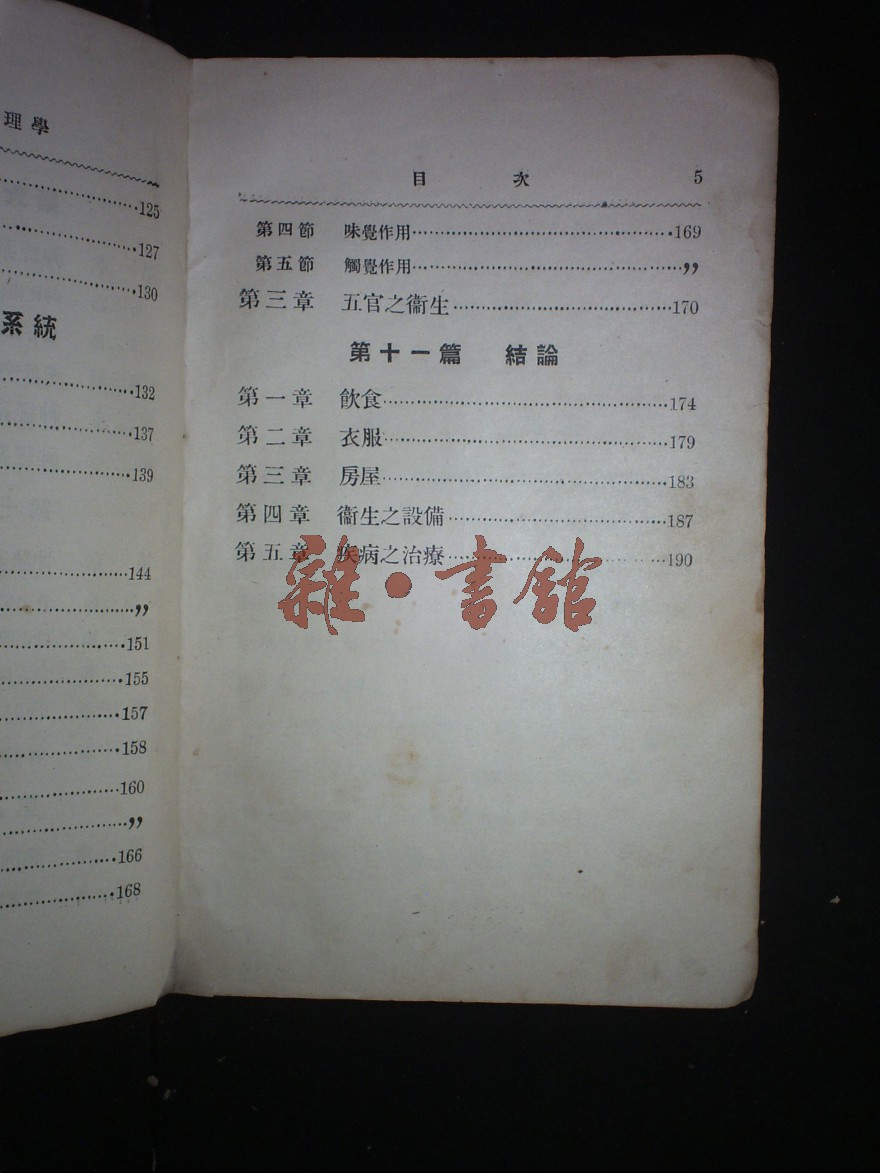 理學
125
127
130
系統
132
137
139
144
"
151
155
157
158
160
"
166
168
目 次 5
第四節 味覺作用 169
第五節 觸覺作用 "
第三章 五官之衞生 170
第十一篇 結論
第一章 飲食 174
第二章 衣服 179
第三章 房屋 183
第四章 衞生之設備 187
第五章 疾病之治療 190
雜·書館